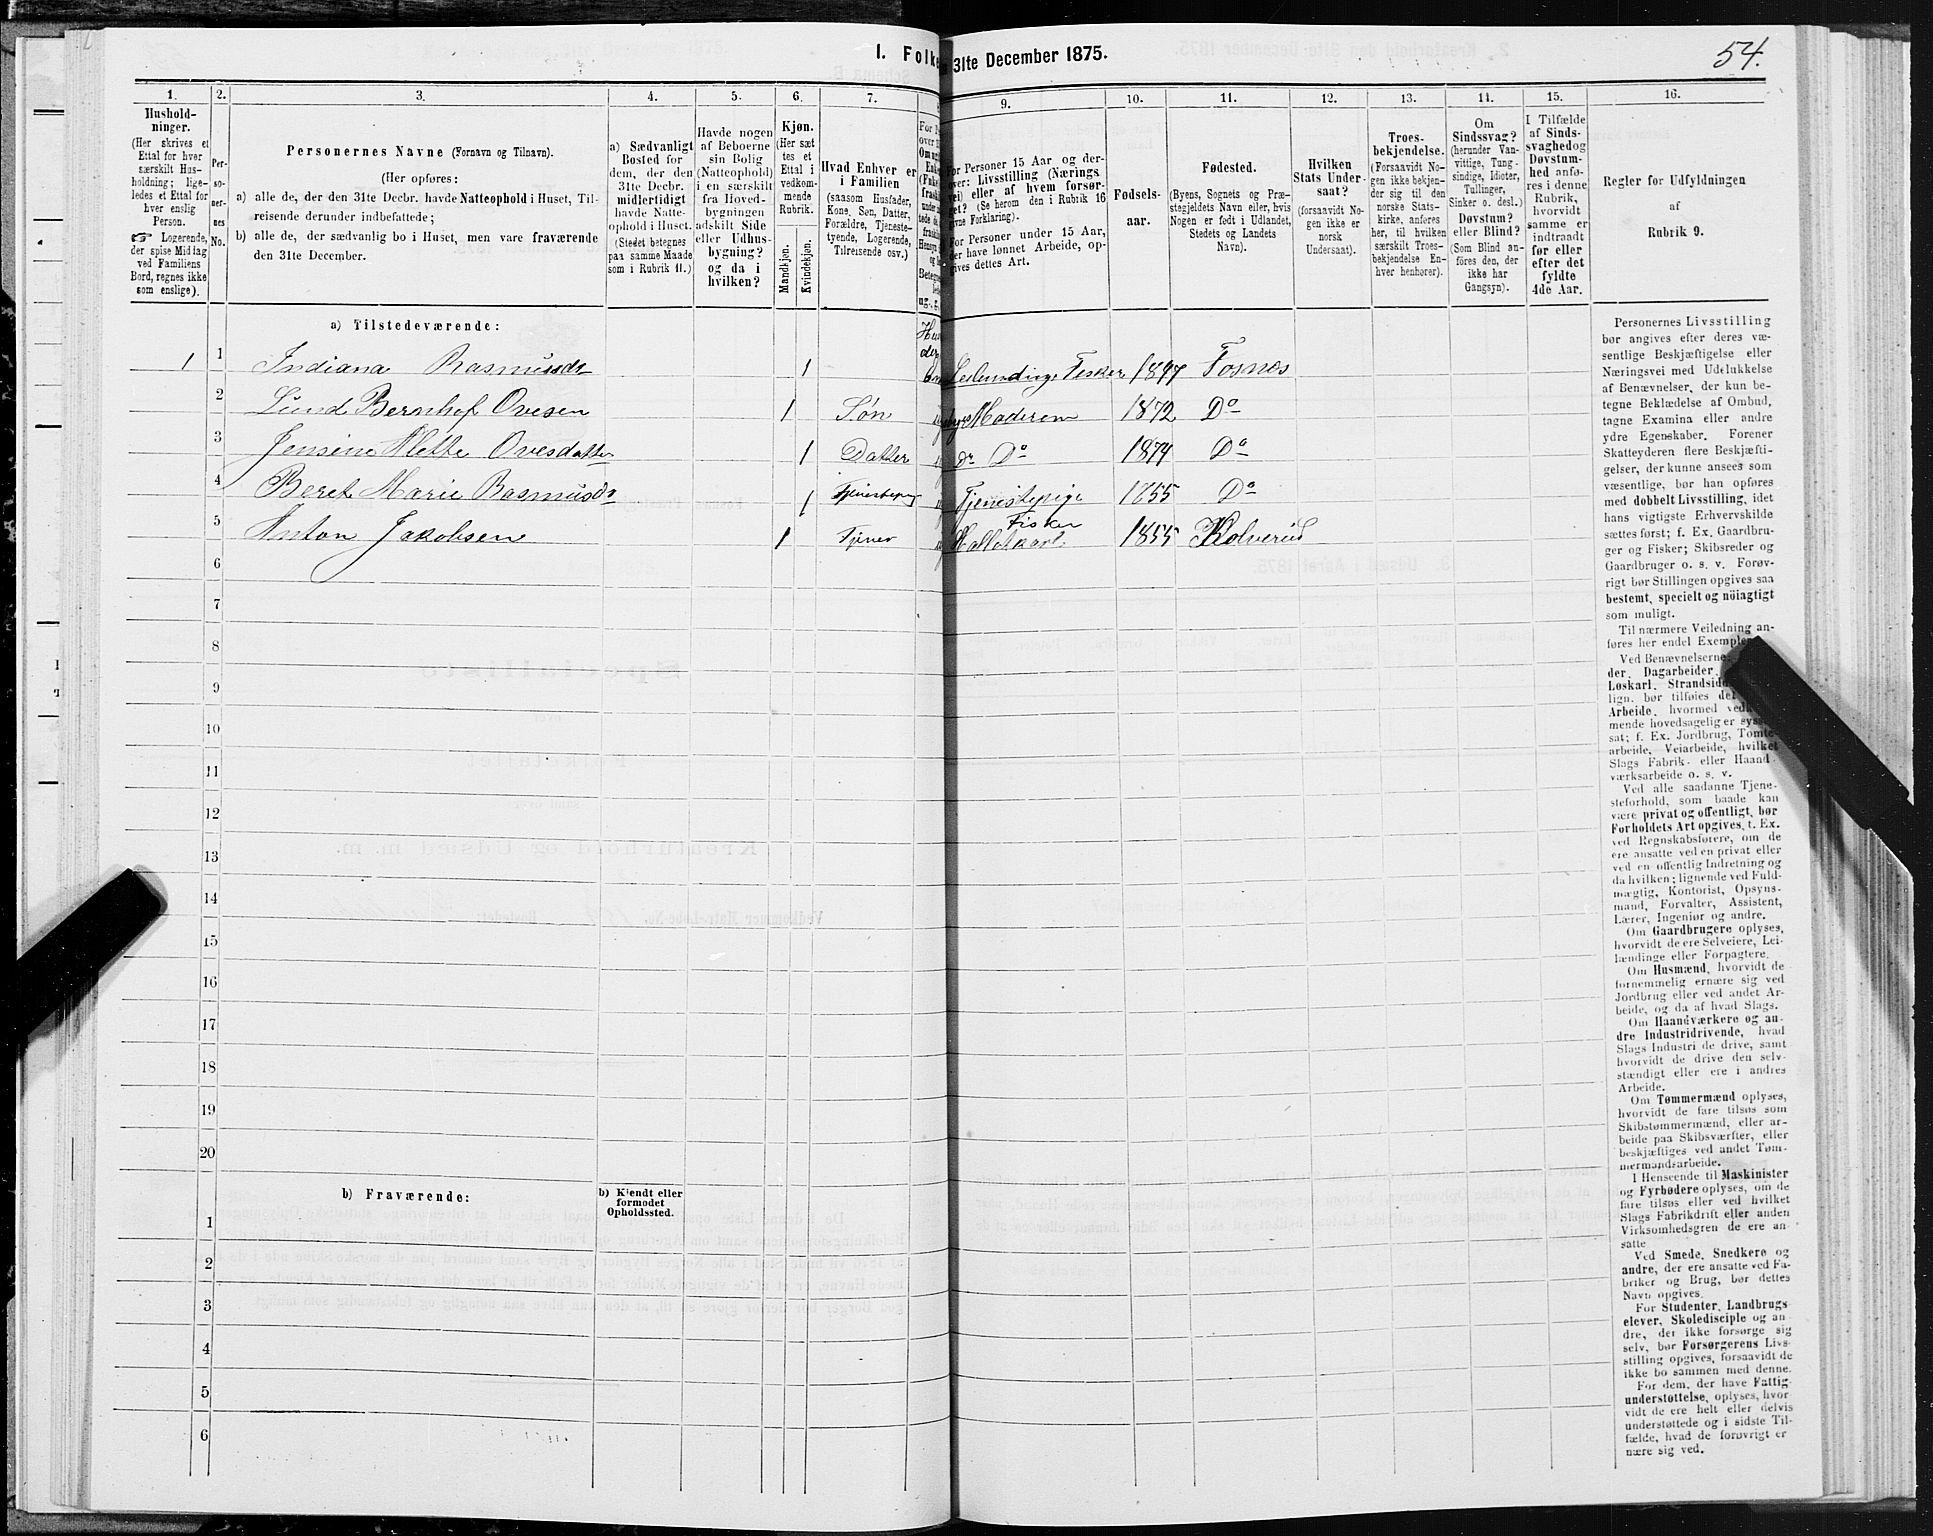 54.
I. Folke
31te December 1875.
1. 2. 3. 4. 5. 6. 7. 9. 10. 11. 12. 13. 14. 15. 16.
Hushold-
ninger.
(Her skrives et
Ettal for hver
særskilt Hus-
holdning; lige-
ledes et Ettal for
hver enslig
Person.
☞ Logerende,
der spise Middag
ved Familiens
Bord, regnes ikke
som enslige).
Per-
so-
ner-
nes
No.
Personernes Navne (Fornavn og Tilnavn).
(Her opføres:
a) alle de, der den 31te Decbr. havde Natteophold i Huset, Til-
reisende derunder indbefattede;
b) alle de, der sædvanlig bo i Huset, men vare fraværende
den 31te December.
a) Sædvanligt
Bosted for
dem, der den
31te Decbr.
midlertidigt
havde Natte-
ophold i Huset.
(Stedet betegnes
paa samme Maade
som i Rubrik 11.)
Havde nogen
af Beboerne
sin Bolig
(Natteophold)
i en særskilt
fra Hoved-
bygningen
adskilt Side
eller Udhus-
bygning?
og da i
hvilken?
Kjøn.
(Her sæt
tes et
Ettal i
vedkom-
mende
Rubrik.
Mandkjøn.
Kvindekjøn.
Hvad Enhver er
i Familien
(saasom Husfader,
Kone, Søn, Datter,
Forældre, Tjeneste-
tyende, Logerende,
Tilreisende osv.)
For Personer 15 Aar og der-
over: Livsstilling (Nærings
vei) eller af hvem forsør-
get? (Se herom den i Rubrik 16
givne Forklaring).
For Personer under 15 Aar,
der have lønnet Arbeide, op-
gives dettes Art.
Fødsels-
aar.
Fødested.
(Byens, Sognets og Præ-
stegjeldets Navn eller, hvis
Nogen er født i Udlandet,
Stedets og Landets
Navn).
Hvilken
Stats Under-
saat?
(forsaavidt No-
gen ikke er
norsk
Undersaat).
Troes-
bekjendelse.
(Forsaavidt No-
gen ikke bekjen-
der sig til den
norske Stats-
kirke, anføres
her, til hvilken
særskilt Troes-
bekjendelse En-
hver henhører).
Om
Sindssvag?
(herunder Van-
vittige, Tung-
sindige, Idioter,
Tullinger,
Sinker o. desl.)
Døvstum?
eller Blind?
(Som Blind an-
føres den, der
ikke har
Gangsyn).
I Tilfælde
af Sinds-
svaghed og
Døvstum-
hed anfø-
res i denne
Rubrik,
hvorvidt
samme er
indtraadt
før eller
efter det
fyldte
4de Aar.
Regler for Udfyldningen
af
Rubrik 9.
a) Tilstedeværende:
1 1 Indiana Rasmusdr 1 Leilændinge Fisker 1847 Fosnes
2 Lund Bernhof Ovesen 1 Søn Moderen 1872 Do
3 Jensine Alette Ovesdatter 1 Datter Do 1874 Do
4 Beret Marie Rasmusdr 1 Tjenestepig Tjenestepige 1855 Do
Fisker
5 Anton Jakobsen 1 Tjener 1855 Kolverid
6
7
8
9
10
11
12
13
14
15
16
17
18
19
20
b) Fraværende:
b) Kjendt eller
formodet
Opholdssted.
1
2
3
4
5
6
Personernes Livsstilling
bør angives efter deres væ-
sentlige Beskjæftigelse eller
Næringsvei med Udelukkelse
af Benævnelser, der kun be-
tegne Beklædelse af Ombud,
tagne Examina eller andre
ydre Egenskaber. Forener
Skatteyderen flere Beskjæfti-
gelser, der kunne ansees som
væsentlige, bør han opføres
med dobbelt Livsstilling, idet
hans vigtigste Erhvervskilde
sættes først; f. Ex. Gaardbru-
ger og Fisker; Skibsreder og
Gaardbruger o. s. v. Forøv-
rigt bør Stillingen opgives saa
bestemt, specielt og nöiagtigt
som muligt.
Til nærmere Veiledning an-
føres her endel Exempler
Ved Benævnelserne:
der Dagarbeider,
Løskarl, Strandsid
lign. bør tilføies det
Arbeide, hvormed vedkom-
mende hovedsagelig er syssel
sat; f. Ex. Jordbrug, Tomte-
arbeide, Veiarbeide, hvilket
Slags Fabrik- eller Haand-
værksarbeide o. s. v.
Ved alle saadanne Tjene-
steforhold, som baade kan
være privat og offentligt, bør
Forholdets Art opgives, t. Ex.
ved Regnskabsførere, om de
ere ansatte ved en privat eller
ved en offentlig Indretning og
da hvilken; lignende ved Fuld-
mægtig, Kontorist, Opsyns-
mand, Forvalter, Assistent,
Lærer, Ingeniør og andre.
Om Gaardbrugere oplyses,
hvorvidt de ere Selveiere, Lei-
lændinge eller Forpagtere.
Om Husmænd, hvorvidt de
fornemmelig ernære sig ved
Jordbrug eller ved andet Ar-
beide, og da af hvad Slags.
Om Haandværkere og an-
dre Industridrivende, hvad
Slags Industri de drive, samt
hvorvidt de drive den selv-
stændigt eller ere i andres
Arbeide.
Om Tømmermænd oplyses,
hvorvidt de fare tilsøs som
Skibstømmermænd, eller ar-
beide paa Skibsværfter, eller
beskjæftiges ved andet Tøm-
mermandsarbeide.
I Henseende til Maskinister
og Fyrbødere oplyses, om de
fare tilsøs eller ved hvilket
Slags Fabrikdrift eller anden
Virksomhedsgren de ere an-
satte
Ved Smede, Snedkere og
andre, der ere ansatte ved Fa-
briker og Brug, bør dettes
Navn opgives.
For Studenter, Landbrugs-
elever, Skoledisciple og an-
dre, der ikke forsørge sig
selv, bør Forsørgerens Livs-
stilling opgives, forsaavidt de
ikke bo sammen med denne.
For dem, der have Fattig-
understøttelse, oplyses, hvor-
vidt de ere helt eller delvis
understøttede og i sidste Til-
fælde, hvad de forøvrigt er
nære sig ved.